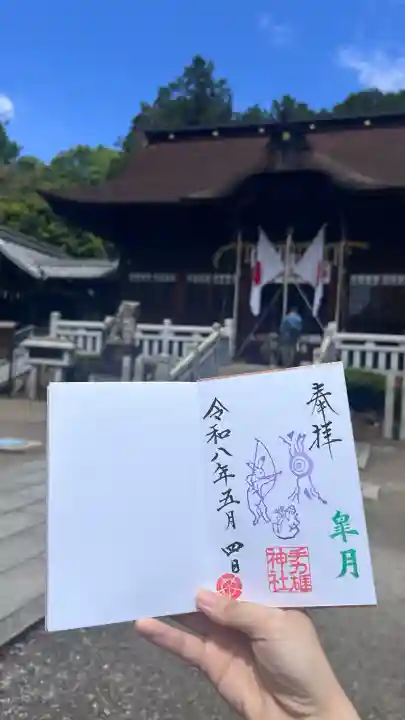 奉拝
皐月
手力雄
神社
令和八年五月四日